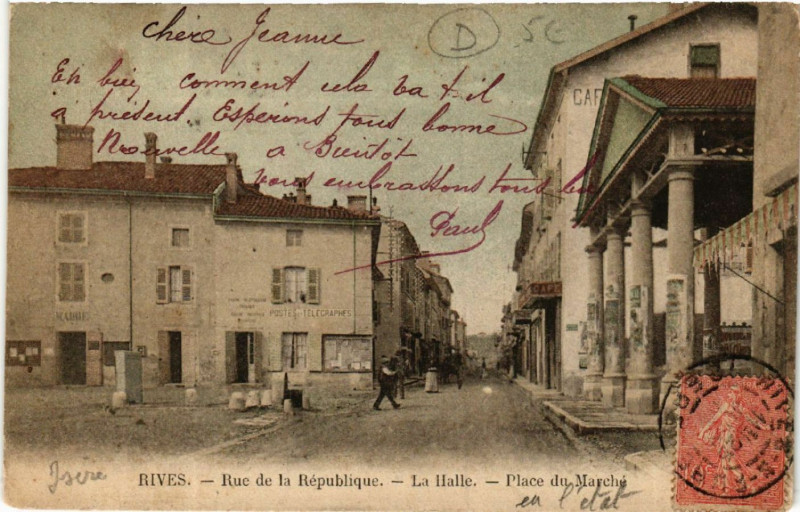 chère Jeanne
D 5€
Eh bien comment cela va t-il
à présent. Esperons tous bonne
Nouvelle a Bientôt
vous embrassons tous
Paul
CAF
CAFÉ
MAIRIE
POSTES TÉLÉGRAPHES
RIVES. — Rue de la République. — La Halle. — Place du Marché
Isère
en l'état